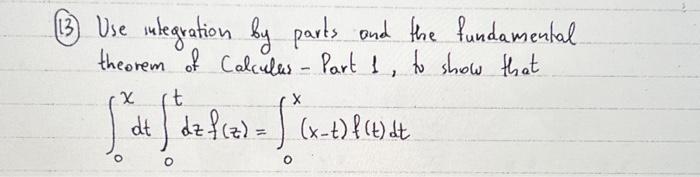 (13) Use integration by parts and the fundamental
theorem of Calculus - Part 1, to show that
∫₀ˣ dt ∫₀ᵗ dz f(z) = ∫₀ˣ (x-t) f(t) dt